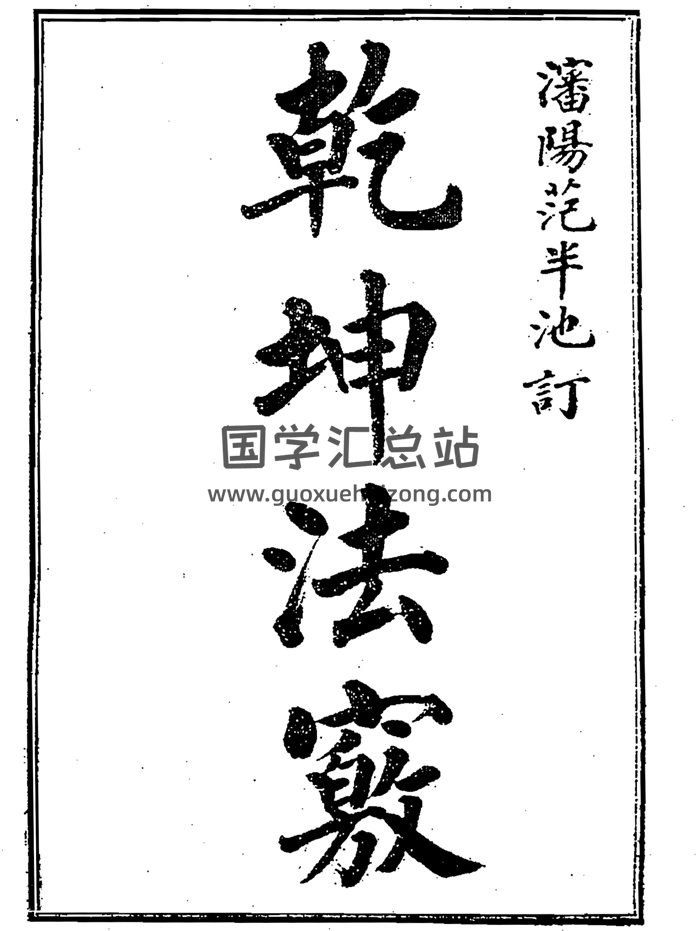 瀋陽范半池訂
乾坤法竅
国学汇总站
www.guoxuehuizong.com